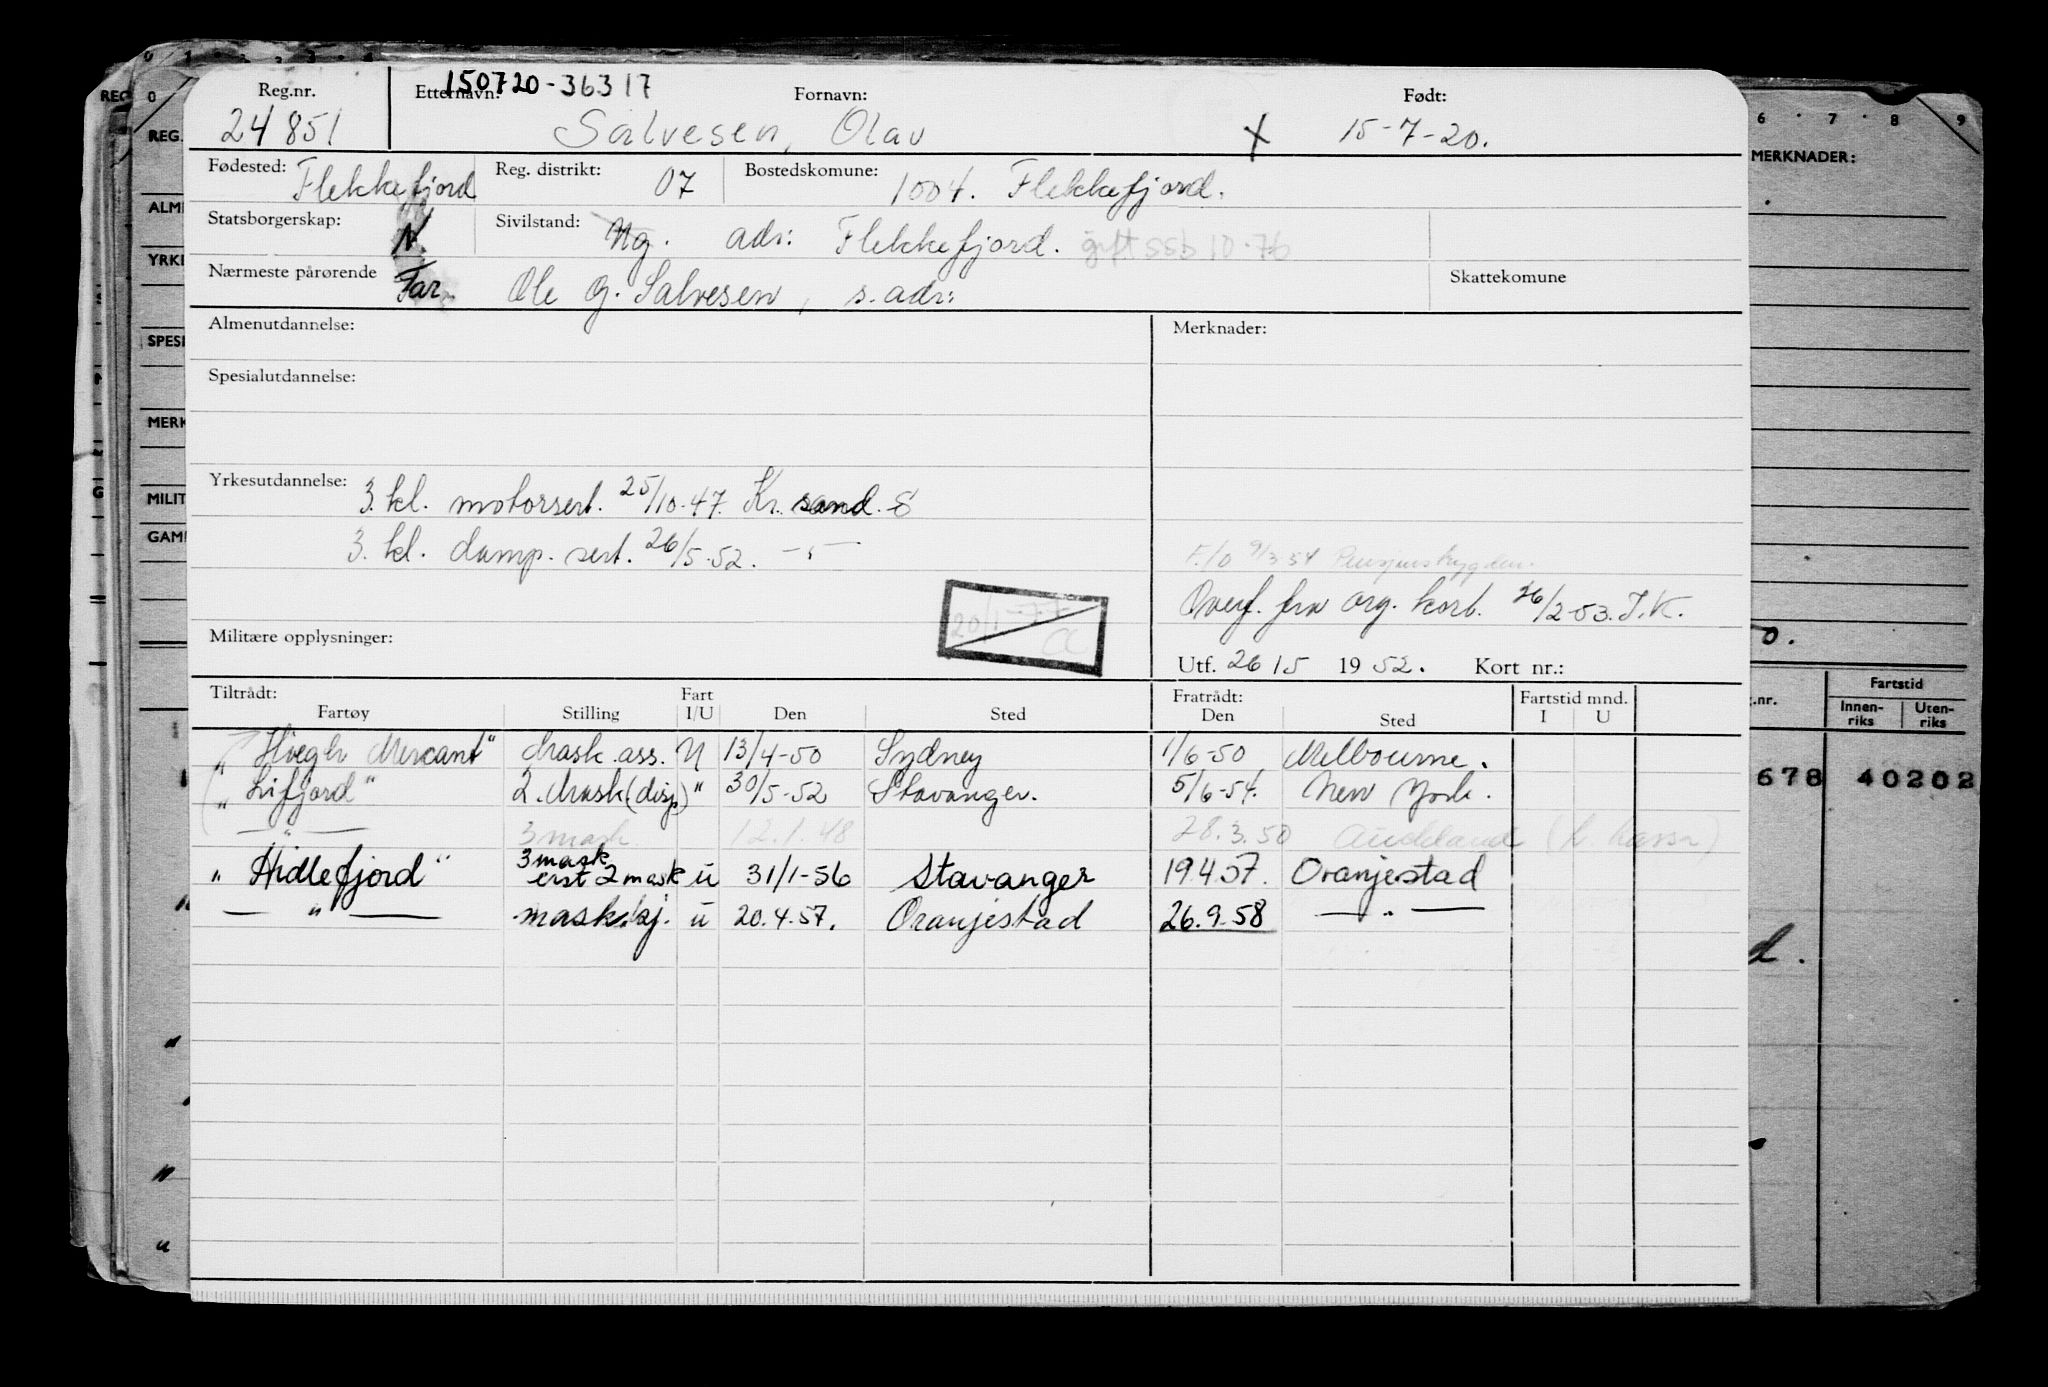 150720-36317
Reg.nr. Etternavn: Fornavn: Født:
24851 Salvesen, Olav X 15-7-20.
Fødested: Flekkefjord Reg. distrikt: 07 Bostedskomune: 1004. Flekkefjord.
Statsborgerskap: N. Sivilstand: Ug. adr: Flekkefjord. gift ssb 10.76
Nærmeste pårørende Far. Ole G. Salvesen, s. adr: Skattekomune
Almenutdannelse: Merknader:
Spesialutdannelse:
Yrkesutdannelse: 3. kl. motorsert. 25/10-47. Kr. sand. S
3. kl. damp. sert. 26/5-52. -"-
F/O 9/3-54 Pensjonstrygden.
Overf. fra org. kort. 26/2-53. J.K.
20/1-77
Militære opplysninger:
Utf. 26/5 1952. Kort nr.:
Tiltrådt: Fart Fratrådt: Fartstid mnd.
Fartøy Stilling I/U Den Sted Den Sted I U
"Høegh Mercant" Mask. ass. U 13/4-50 Sydney 1/6-50 Melbourne.
"Lifjord" 2. Mask (disp) " 30/5-52 Stavanger. 5/6-54. New York.
-"- 3 mask. 12.1.48 28.3.50 Auckland
3 mask
"Hidlefjord" erst 2 mask u 31/1-56 Stavanger 19.4.57. Oranjestad
-"- mask.bj. u 20.4.57. Oranjestad 26.9.58 -"-
REG. 0
ALM
YRKE
SPESI
MERK
MILIT
GAM
6 7 8 9
MERKNADER:
Fartstid
Innen-riks Uten-riks
678 40202